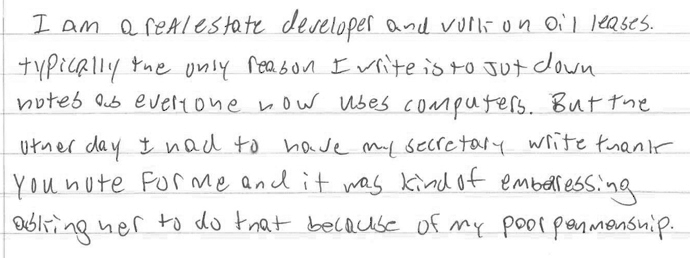 I am a real estate developer and work on oil leases.
typically the only reason I write is to Jot down
notes as everyone now uses computers. But the
other day I had to have my secretary write thank
you note for me and it was kind of emberressing
asking her to do that because of my poor penmenship.